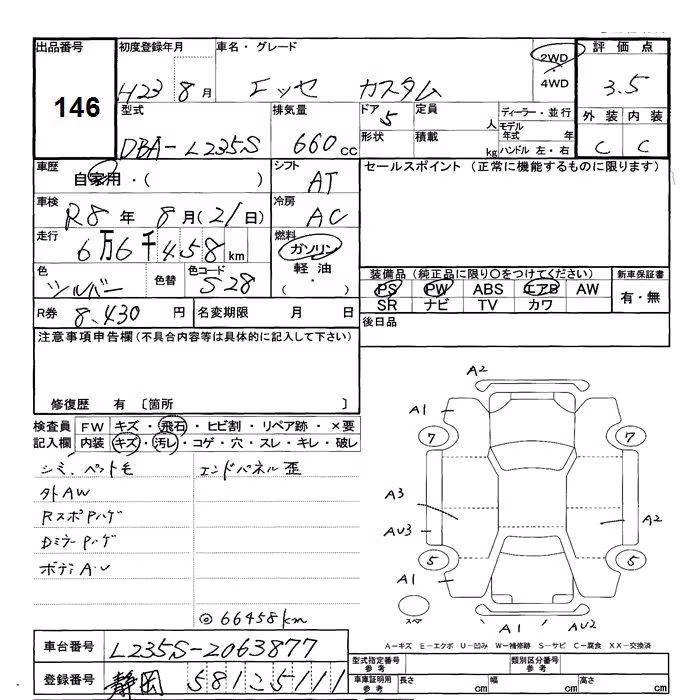 出品番号 初度登録年月 車名・グレード 評価点
146 H23 8月 エッセ カスタム 2WD 4WD 3.5
型式 排気量 ドア 定員 ディーラー・並行 外装 内装
DBA-L235S 660cc 5 人 モデル年式 年 C C
形状 積載 kg ハンドル 左・右
車歴 自家用・( ) シフト AT セールスポイント (正常に機能するものに限ります)
車検 R8年 8月(21日) 冷房 AC
走行 6万6千458km 燃料 ガソリン
軽油
・
( )
色 シルバー 色替 色コード S28
装備品(純正品に限り〇をつけてください) 新車保証書
PS PW ABS エアB AW 有・無
SR ナビ TV カワ
R券 8.430円 名変期限 月 日 後日品
注意事項申告欄(不具合内容等は具体的に記入して下さい)
修復歴 有 〔箇所 〕
検査員 FW キズ・飛石・ヒビ割・リペア跡・×要
記入欄 内装 キズ・汚レ・コゲ・穴・スレ・キレ・破レ
シミ、ペット毛 エンドパネル歪
外AW
RスポPハゲ
DミラーPハゲ
ボディA・U
◎66458km
A2
A1
7 7
A3
A2
AU3
5 5
A1
スペア
A1 AU2
A-キズ E-エクボ U-凹み W-補修跡 S-サビ C-腐食 XX-交換済
車台番号 L235S-2063877
型式指定番号 参考 類別区分番号 参考
登録番号 静岡 581 こ 5111
車庫証明用 参考 長さ cm 幅 cm 高さ cm